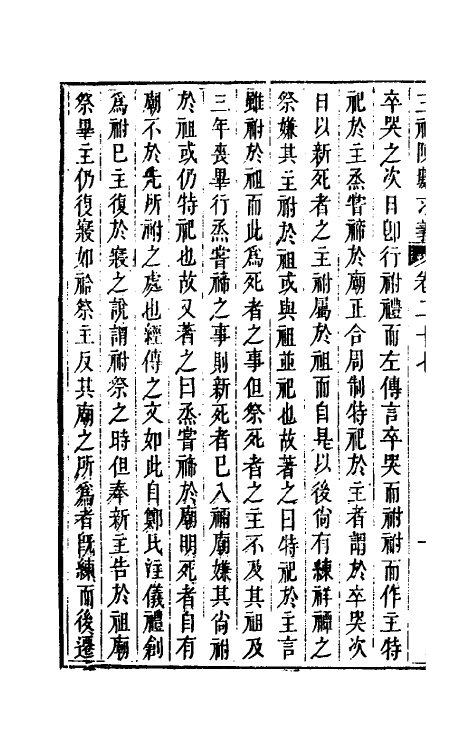 卒哭之次日卽行祔禮而左傳言卒哭而祔祔而作主特
祀於主烝嘗禘於廟正合周制特祀於主者謂於卒哭次
日以新死者之主祔屬於祖而自是以後尙有練祥禫之
祭嫌其主祔於祖或與祖並祀也故著之曰特祀於主言
雖祔於祖而此爲死者之事但祭死者之主不及其祖及
三年喪畢行烝嘗禘之事則新死者已入禰廟嫌其尙祔
於祖或仍特祀也故又著之曰烝嘗禘於廟明死者自有
廟不於先所祔之處也經傳之文如此自鄭氏注儀禮創
爲祔已主復於寢之說謂祔祭之時但奉新主告於祖廟
祭畢主仍復寢如祫祭主反其廟之所爲者旣練而後遷